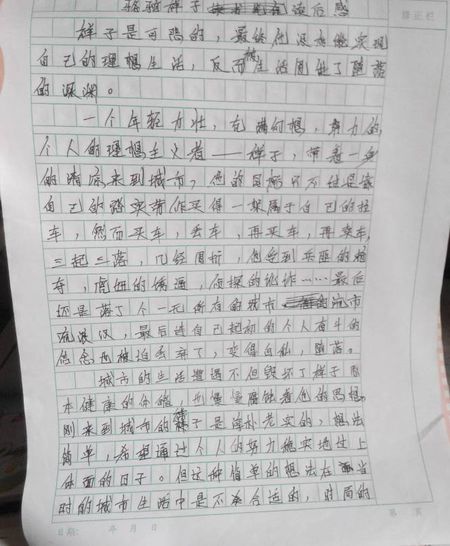 骆驼祥子读后感
样子是可悲的，最终他没有能实现
自己的理想生活，反而被生活同化了堕落
的深渊。
一个年轻力壮，充满幻想，努力的
个人的理想主义者——样子，带着一
的来到城市，他的目标只不过是靠
自己的踏实劳作买得一架属于自己的拉
车，然而买车，丢车，再买车，再卖车，
三起三落，几经周折，他受到兵匪的抢
夺，虎妞的诱逼，侦探的讹诈……最后
还是落了个一无所有的城市
流浪汉，最后连自己起初的个人奋斗的
信念也被怕丢弃了，变得自私，堕落。
城市的生活遭遇不但毁坏了样子原
本健康的体魄，也腐蚀着他的思想。
刚来到城市的样子是淳朴老实的，想法
简单，希望通过个人的努力稳实地过上
体面的日子。但这种简单的想法在当
时的城市生活中是不合适的，时间的
修正栏
第 页
日期: 年 月 日